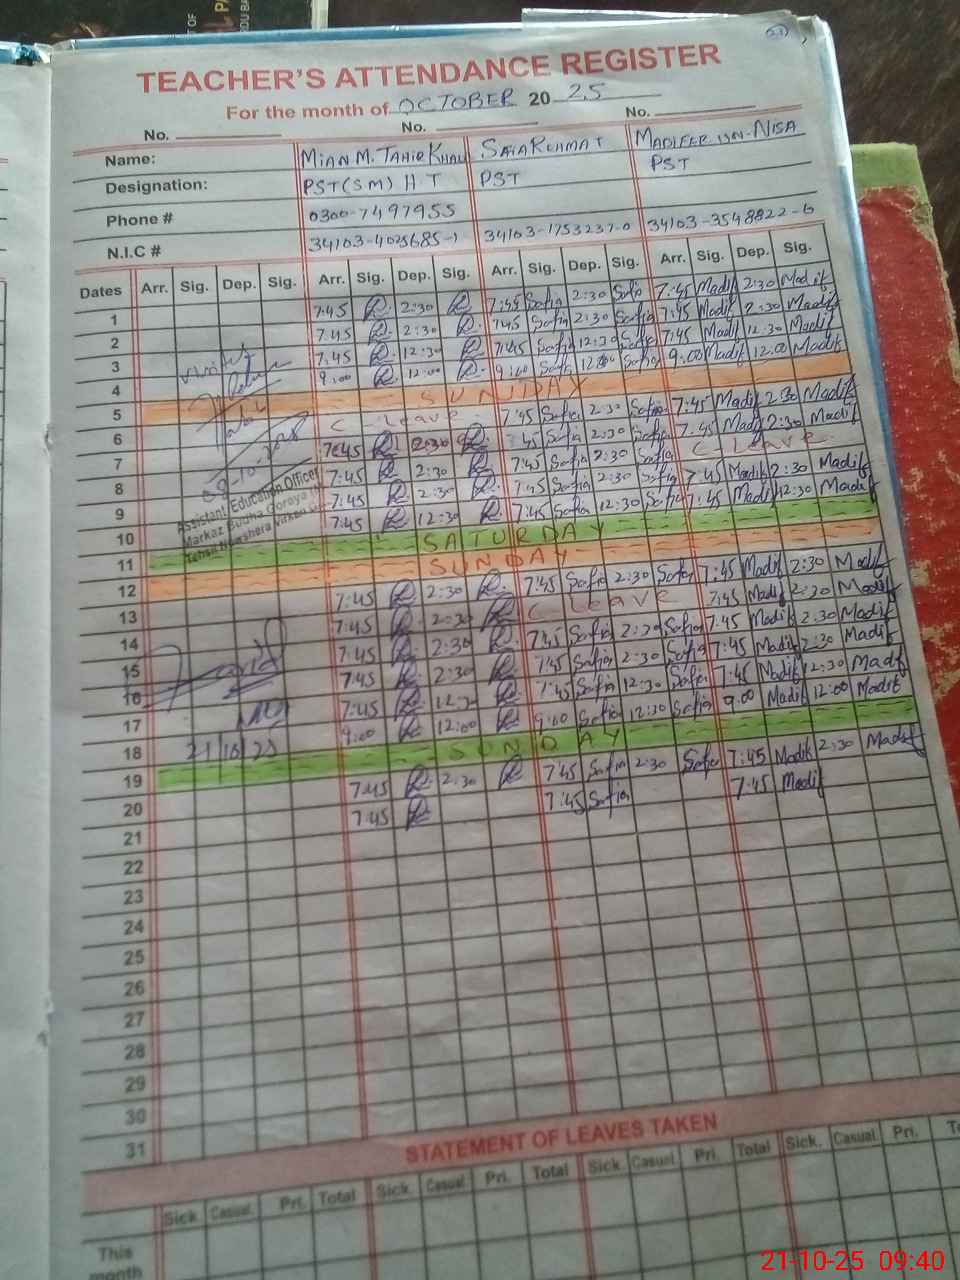 TEACHER'S ATTENDANCE REGISTER
For the month of OCTOBER 20 25
No. No. No.
Name: MIAN M. TAHIR KHAN
Designation: PST (SM) H T PST PST
Phone # 0300-7497955
N.I.C # 34103-4025685-1 34103-1753237-0 34103-3548822-6
Dates Arr. Sig. Dep. Sig. Arr. Sig. Dep. Sig. Arr. Sig. Dep. Sig. Arr. Sig. Dep. Sig.
1 7:45 2:30 7:45 Safia 2:30 Safia 7:45 Madif 2:30 Madif
2 7:45 2:30 7:45 Safia 2:30 Safia 7:45 Madif 2:30 Madif
3 7:45 12:30 7:45 Safia 12:30 Safia 7:45 Madif 12:30 Madif
4 9:00 12:00 9:00 Safia Safia 9:00 Madif 12:00 Madif
5 SUNDAY
6 C Leave 7:45 Safia 2:30 Safia 7:45 Madif 2:30 Madif
7 7:45 2:30 45 Safia 2:30 Safia 7:45 Madif 2:30 Madif
8 7:45 2:30 7:45 Safia 2:30 Safia C Leave
9 7:45 2:30 7:45 Safia 2:30 Safia 7:45 Madif 2:30 Madif
10 7:45 12:30 7:45 Safia 12:30 Safia 7:45 Madif 12:30 Madif
11 SATURDAY
12 SUNDAY
13 7:45 2:30 7:45 Safia 2:30 Safia 7:45 Madif 2:30 Madif
14 7:45 2:30 C Leave 7:45 Madif 2:30 Madif
15 7:45 2:30 7:45 Safia 2:30 Safia 7:45 Madif 2:30 Madif
16 7:45 2:30 7:45 Safia 2:30 Safia 7:45 Madif 2:30 Madif
17 7:45 12:30 7:45 Safia 12:30 Safia 7:45 Madif 12:30 Madif
18 9:00 12:00 9:00 Safia 12:30 Safia 9:00 Madif 12:00 Madif
19 SUNDAY
20 7:45 2:30 7:45 Safia 2:30 Safia 7:45 Madif 2:30 Madif
21 7:45 7:45 Safia 7:45 Madif
22
23
24
25
26
27
28
29
30
31
Assistant Education Officer
Markaz Budha Goraya
Tehsil Nowshera Virkan
STATEMENT OF LEAVES TAKEN
Sick Casual Pri. Total Sick. Casual Pri. Total Sick. Casual Pri. Total Sick. Casual. Pri.
This
month
21-10-25 09:40